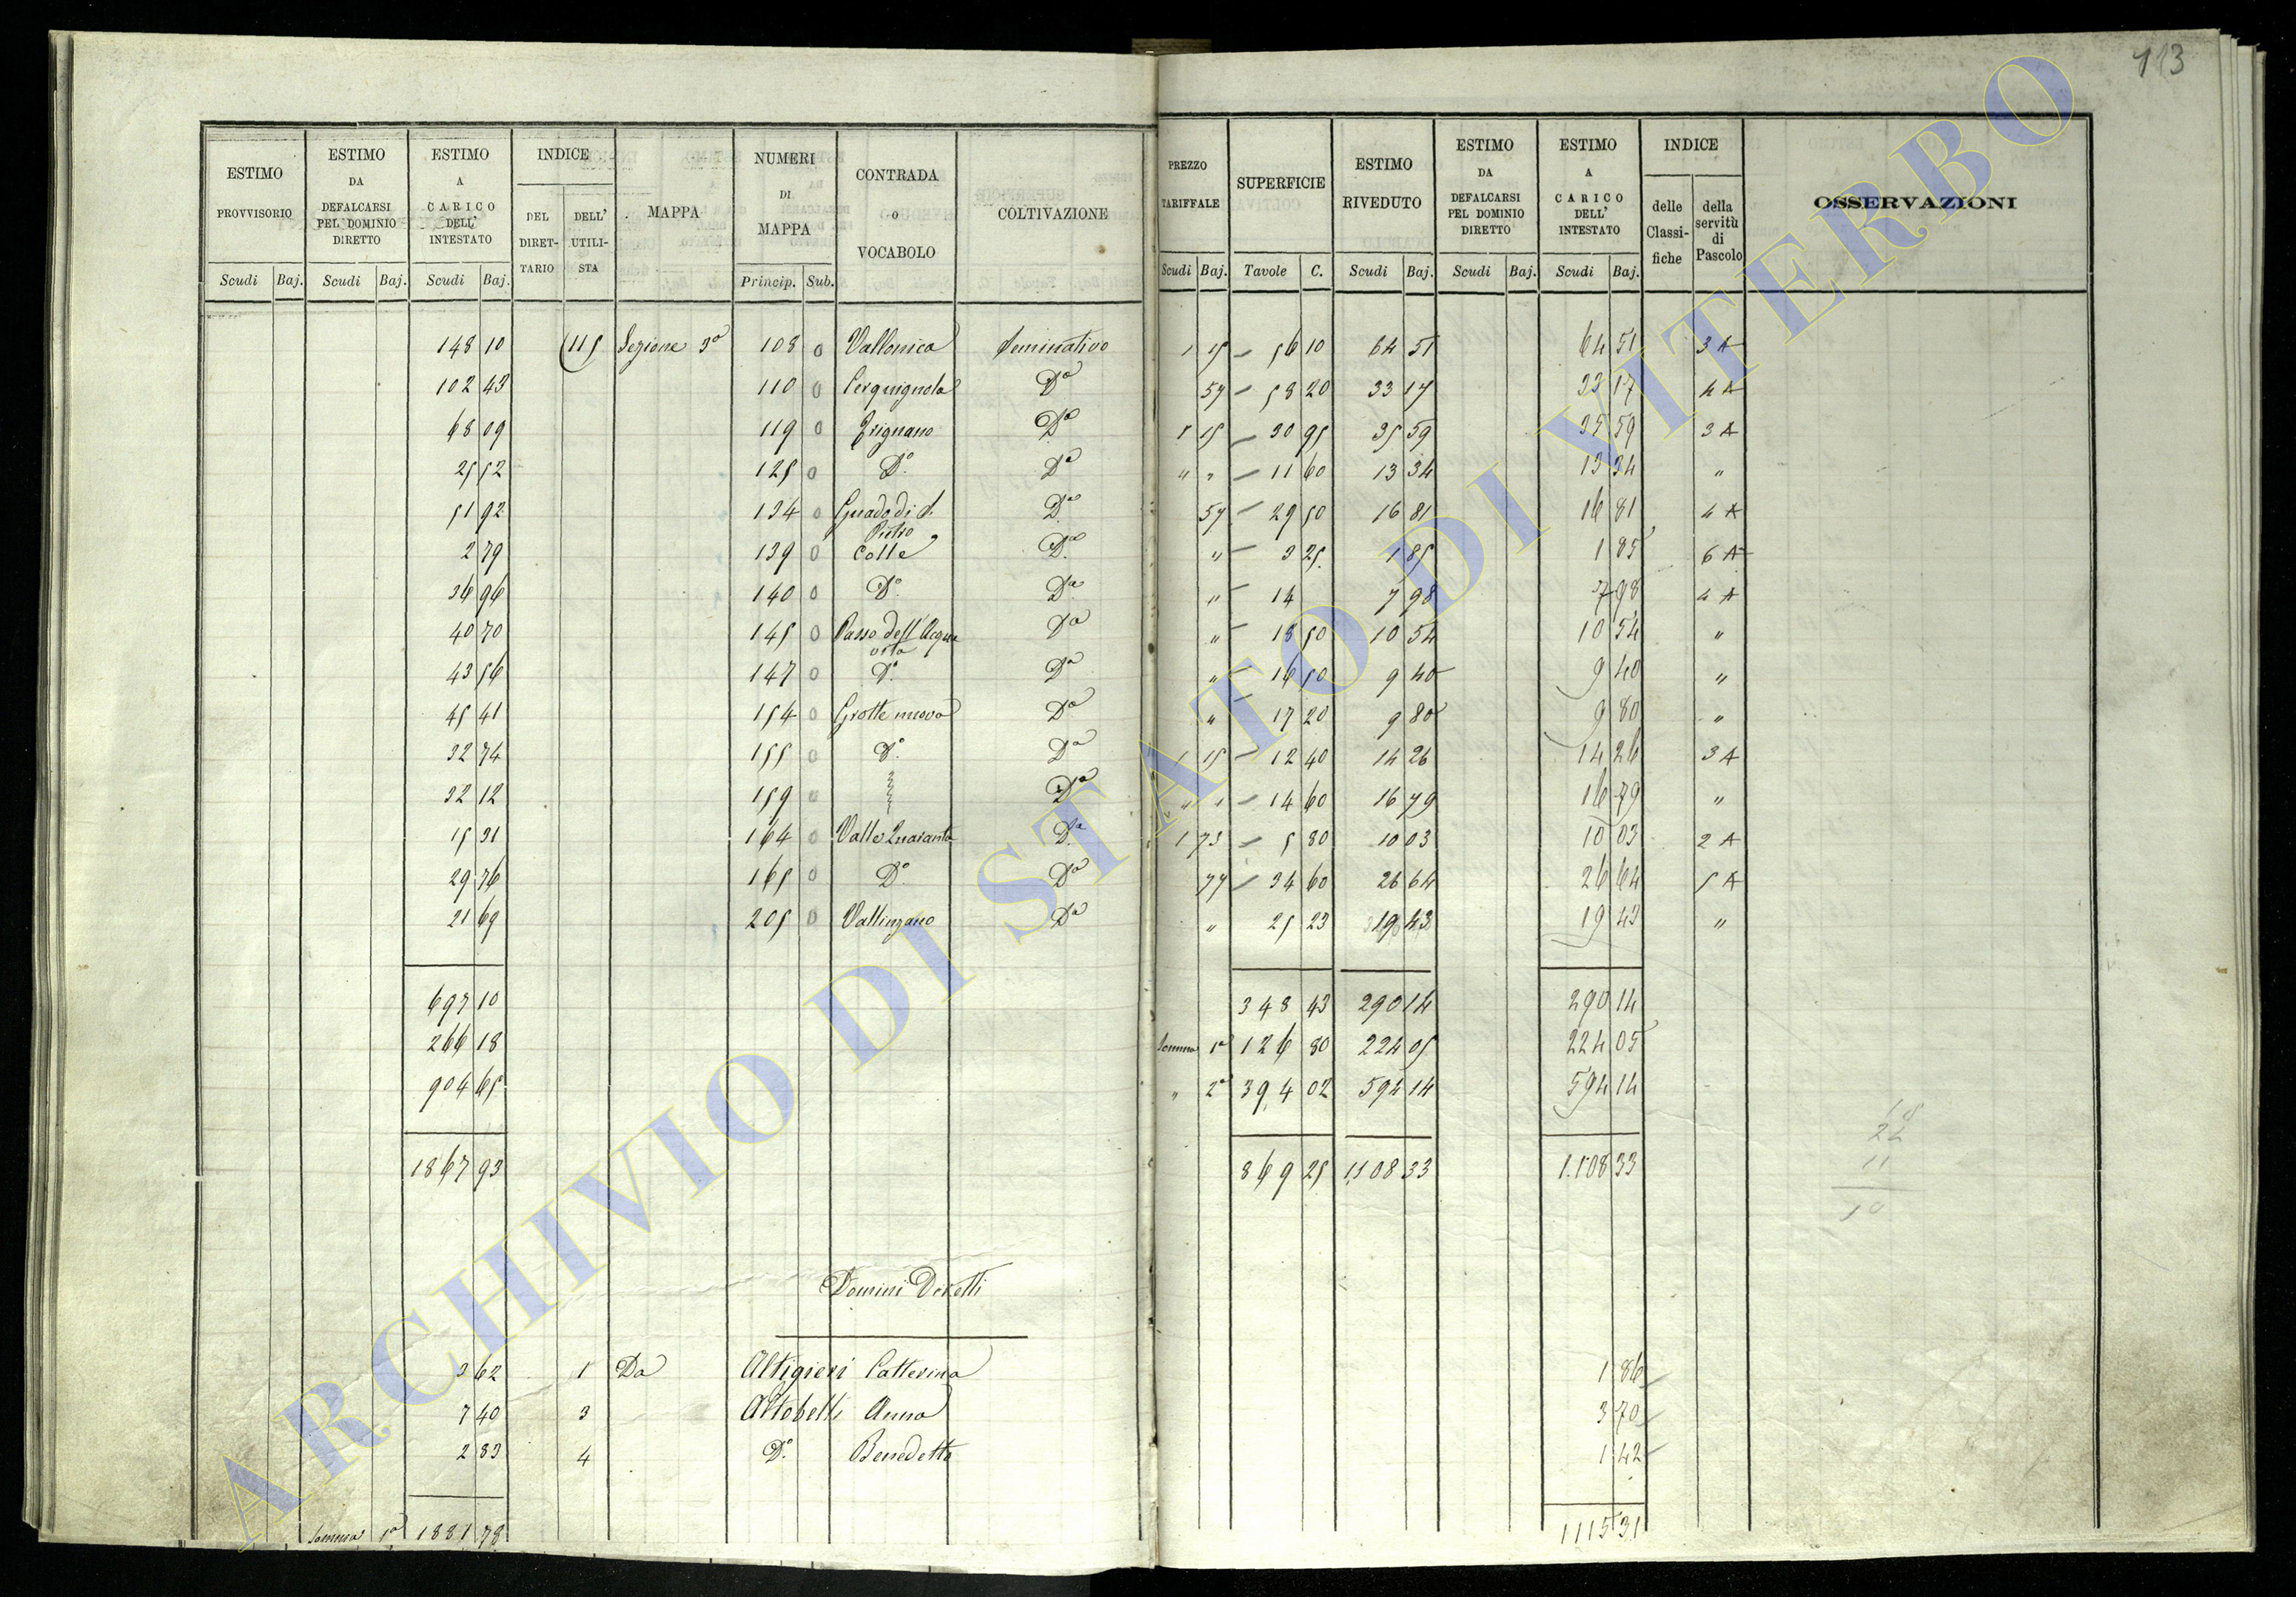 113
ESTIMO PROVVISORIO | ESTIMO DA DEFALCARSI PEL DOMINIO DIRETTO | ESTIMO A CARICO DELL' INTESTATO | INDICE DEL DIRET-TARIO | DELL' UTILI-STA | MAPPA | NUMERI DI MAPPA | CONTRADA o VOCABOLO | COLTIVAZIONE | PREZZO TARIFFALE | SUPERFICIE | ESTIMO RIVEDUTO | ESTIMO DA DEFALCARSI PEL DOMINIO DIRETTO | ESTIMO A CARICO DELL' INTESTATO | INDICE delle Classi-fiche | della servitù di Pascolo | OSSERVAZIONI
Scudi Baj. | Scudi Baj. | Scudi Baj. | Princip. Sub. | Scudi Baj. | Tavole C. | Scudi Baj. | Scudi Baj. | Scudi Baj.
148 10 | 115 | Sezione 3a | 108 0 | Vallonica | Seminativo | 1 15 | 56 10 | 64 51 | 64 51 | 3 A
102 43 | 110 0 | Cerquignola | Da | 57 | 58 20 | 33 17 | 33 17 | 4 A
68 09 | 119 0 | Grignano | Da | 1 15 | 30 95 | 35 59 | 35 59 | 3 A
25 52 | 125 0 | Do | Da | " " | 11 60 | 13 34 | 13 34 | "
51 92 | 134 0 | Guado di S. Pietro | Da | 57 | 29 50 | 16 81 | 16 81 | 4 A
2 79 | 139 0 | Colle | Da | " | 3 25 | 1 85 | 1 85 | 6 A
36 96 | 140 0 | Do | Da | " | 14 | 7 98 | 7 98 | 4 A
40 70 | 145 0 | Passo dell'Acqua | Da | " | 18 50 | 10 54 | 10 54 | "
43 56 | 147 0 | Do | Da | " | 16 50 | 9 40 | 9 40 | "
45 41 | 154 0 | Grotte nuova | Da | " | 17 20 | 9 80 | 9 80 | "
32 74 | 155 0 | Do | Da | 1 15 | 12 40 | 14 26 | 14 26 | 3 A
32 12 | 159 0 | Da | " " | 14 60 | 16 79 | 16 79 | "
15 31 | 164 0 | Valle Quaranta | Da | 1 73 | 5 80 | 10 03 | 10 03 | 2 A
29 76 | 165 0 | Do | Da | 77 | 34 60 | 26 64 | 26 64 | 5 A
21 69 | 205 0 | Vallingano | Da | " | 25 23 | 19 43 | 19 43 | "
697 10 | 348 43 | 290 14 | 290 14
266 18 | Somma 1a | 126 80 | 224 05 | 224 05
904 65 | " 2a | 394 02 | 594 14 | 594 14
1867 93 | 869 25 | 1108 33 | 1.108 33
Domini Diretti
3 62 | 1 | Da | Altigieri Catterina | 1 86
7 40 | 3 | Altobelli Anna | 3 70
2 83 | 4 | Do Benedetto | 1 42
Somma 1a | 1881 78 | 1115 31
ARCHIVIO DI STATO DI VITERBO